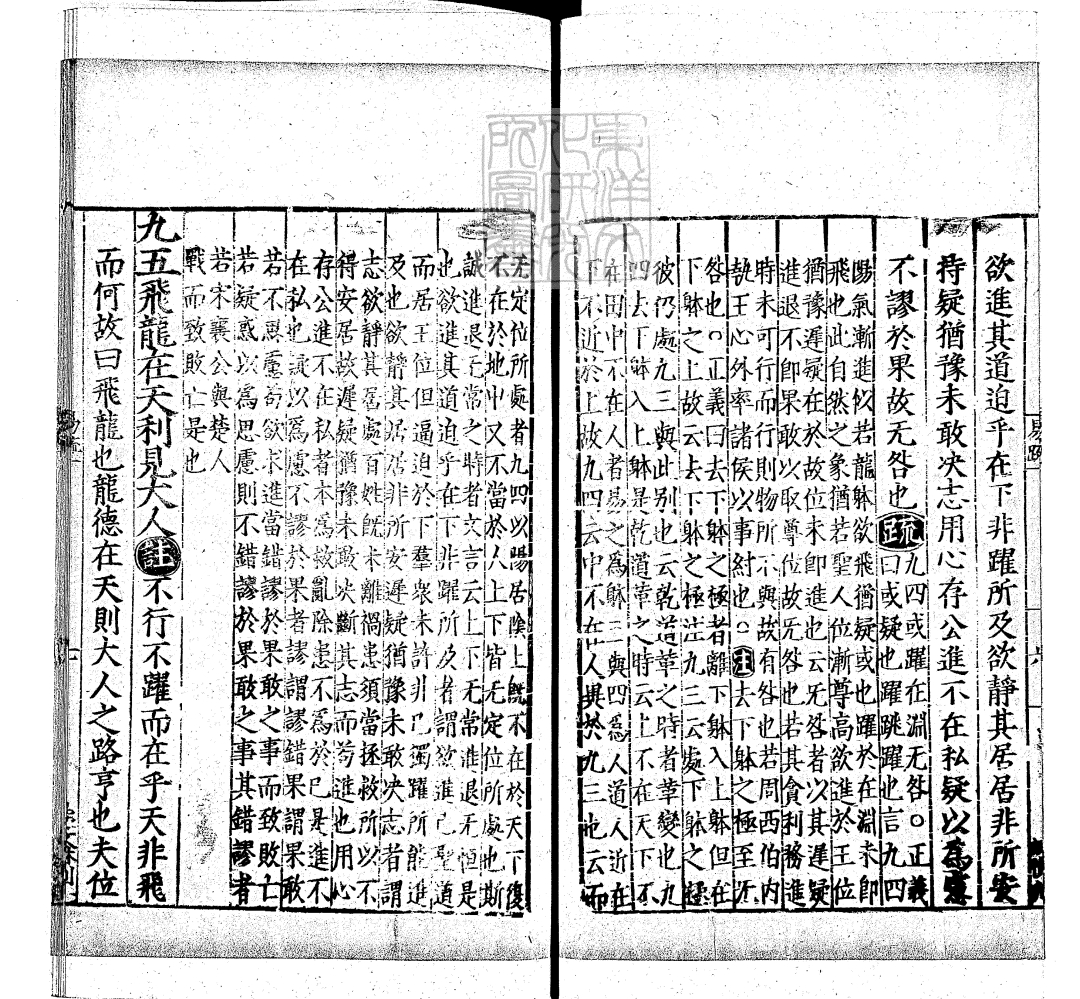 欲進其道迫乎在下非躍所及欲靜其居居非所安
持疑猶豫未敢决志用心存公進不在私疑以爲慮
不謬於果故无咎也疏九四或躍在淵无咎○正義
曰或疑也躍跳躍也言九四
陽氣漸進似若龍躰欲飛猶疑或也躍於在淵未卽
飛也此自然之象猶若聖人位漸尊高欲進於王位
猶豫遲疑在於故位未卽進也云无咎者以其遲疑
進退不卽果敢以取尊位故无咎也若其貪利務進
時未可行而行則物所不與故有咎也若周西伯内
執王心外率諸侯以事紂也○注去下躰之極至无
咎也○正義曰去下躰之極者離下躰入上躰但在
下躰之上故云去下躰之極注九三云處下躰之極
彼仍處九三與此别也云乾道革之時者革變也九
四去下躰入上躰是乾道革之時云上不在天下不
在田中不在人者易之爲躰三與四爲人道人近在
下不近於上故九四云中不在人異於九三也云而
无定位所處者九四以陽居陰上旣不在於天下復
不在於地中又不當於人上下皆无定位所處也斯
誠進退无常之時者文言云上下无常進退无恒是
也欲進其道迫乎在下非躍所及者謂欲進己聖道
而居王位但逼迫於下羣衆未許非己獨躍所能進
及也欲靜其居居非所安遲疑猶豫未敢决志者謂
志欲靜其居處百姓旣未離禍患須當拯救所以不
得安居故遲疑猶豫未敢决斷其志而苟進也用心
存公進不在私者本爲救亂除患不爲於己是進不
在私也疑以爲慮不謬於果者謬謂謬錯果謂果敢
若不思慮苟欲求進當錯謬於果敢之事而致敗亡
若疑惑以爲思慮則不錯謬於果敢之事其錯謬者
若宋襄公與楚人
戰而致敗亡是也
九五飛龍在天利見大人註不行不躍而在乎天非飛
而何故曰飛龍也龍德在天則大人之路亨也夫位